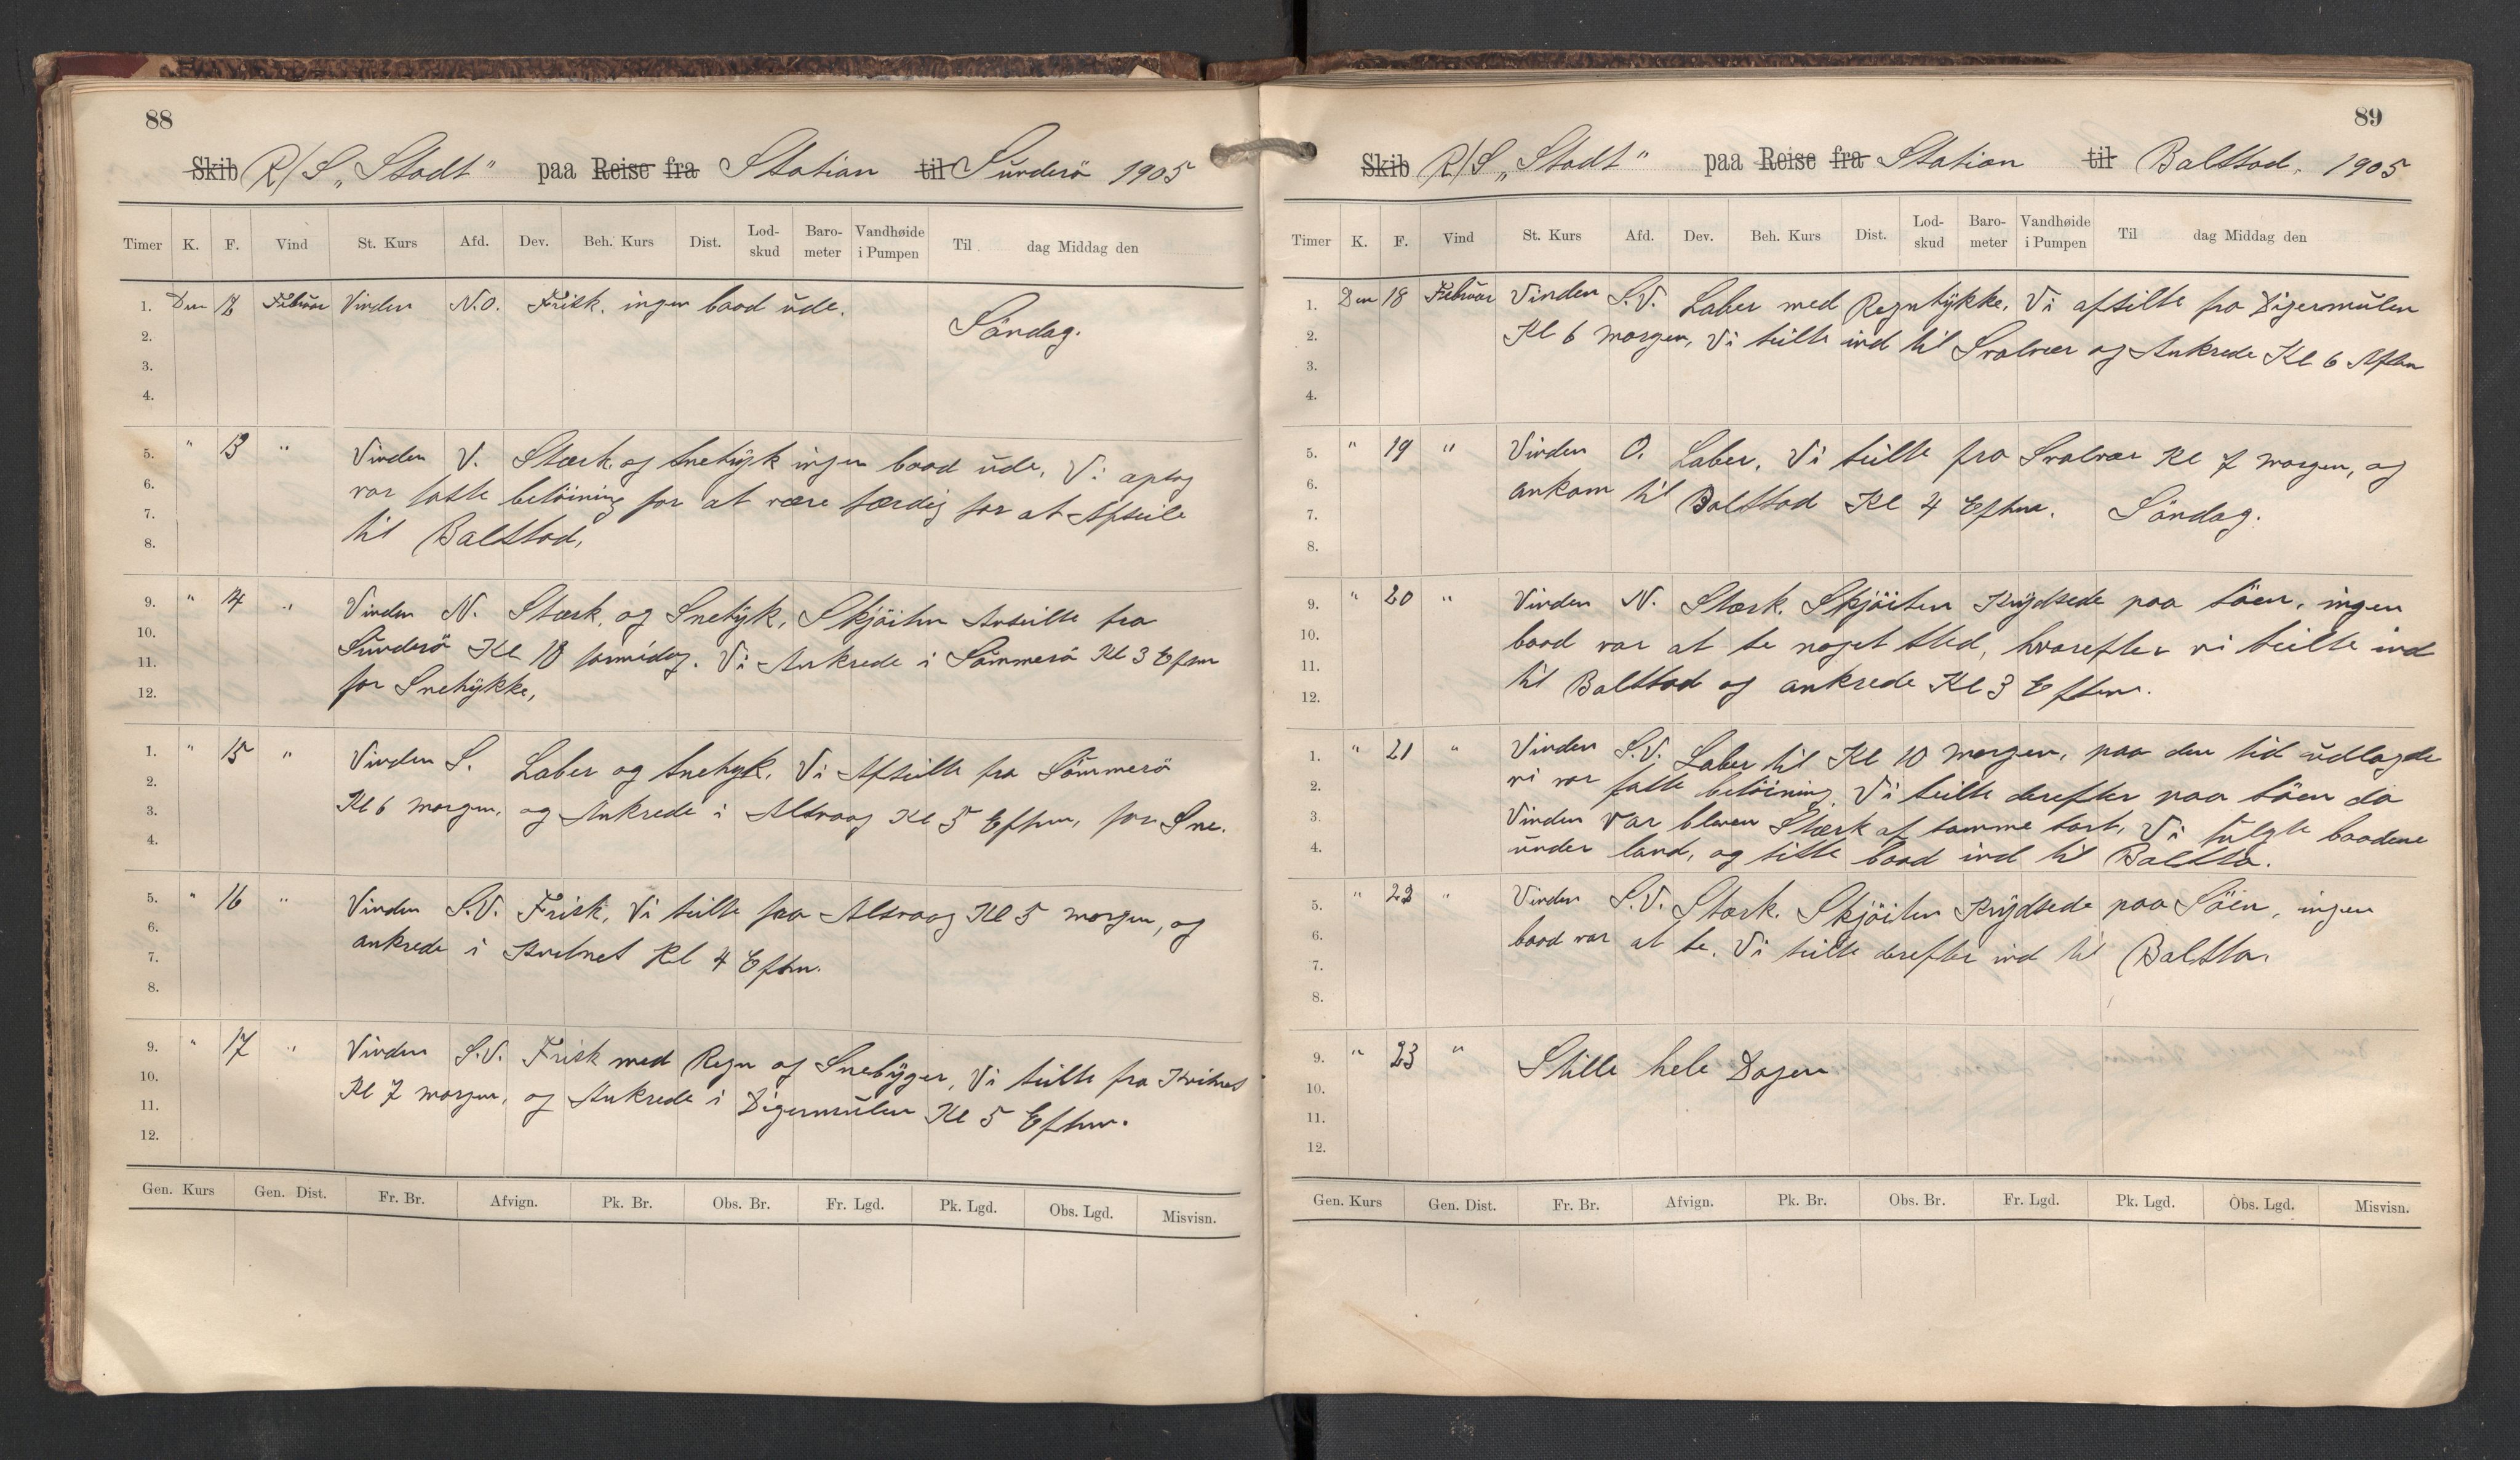 88
Skib R/S „Stadt" paa Reise fra Station til Sunderö 1905
Timer K. F. Vind St. Kurs Afd. Dev. Beh. Kurs Dist. Lodskud Barometer Vandhøide i Pumpen Til dag Middag den
1. Den 12 Februar Vinden N.O. Frisk. ingen baad ude.
2. Söndag.
3.
4.
5. " 13 " Vinden V. Stærk og Snetyk ingen baad ude. Vi optog
6. vor faste betöining for at være færdig for at Afseile
7. til Balstad,
8.
9. " 14 " Vinden N. Stærk, og Snetyk, Skjöiten Avseilte fra
10. Sunderö Kl 10 formidag. Vi Ankrede i Sömmerö Kl 3 Efm
11. for Snetykke,
12.
1. " 15 " Vinden S. Laber og Snetyk. Vi Afseilte fra Sömmerö
2. Kl 6 morgen, og Ankrede i Alsvaag Kl 5 Eftm, for Sne.
3.
4.
5. " 16 " Vinden S.V. Frisk, Vi seilte fra Alsvaag Kl 5 morgen, og
6. ankrede i Kvitnes Kl 4 Eftm.
7.
8.
9. " 17 " Vinden S.V. Frisk med Regn og Snebyger, Vi seilte fra Kvitnes
10. Kl 7 morgen, og Ankrede i Digermulen Kl 5 Eftm.
11.
12.
Gen. Kurs Gen. Dist. Fr. Br. Afvign. Pk. Br. Obs. Br. Fr. Lgd. Pk. Lgd. Obs. Lgd. Misvisn.
89
Skib R/S „Stadt" paa Reise fra Station til Balstad. 1905
Timer K. F. Vind St. Kurs Afd. Dev. Beh. Kurs Dist. Lodskud Barometer Vandhøide i Pumpen Til dag Middag den
1. Den 18 Februar Vinden S.V. Laber med Regntykke. Vi afseilte fra Digermulen
2. Kl 6 morgen, Vi seilte ind til Svolvær og Ankrede Kl 6 Aften
3.
4.
5. " 19 " Vinden O. Laber. Vi seilte fra Svolvær Kl 7 morgen, og
6. ankom til Balstad Kl 4 Eftm. Söndag.
7.
8.
9. " 20 " Vinden N. Stærk. Skjöiten Krydsede paa Söen, ingen
10. baad var at se noget sted, hvorefter vi seilte ind
11. til Balstad og ankrede Kl 3 Eftm.
12.
1. " 21 " Vinden S.V. Laber til Kl 10 morgen, paa den tid udlagde
2. vi vor faste betöining. Vi seilte derefter paa Söen da
3. Vinden var bleven Stærk af samme sort, Vi fulgte baadene
4. under land, og sitte baad ind til Balsta.
5. " 22 " Vinden S.V. Stærk. Skjöiten Krydsede paa Söen, ingen
6. baad var at se. Vi seilte derefter ind til Balsta.
7.
8.
9. " 23 " Stille hele Dagen
10.
11.
12.
Gen. Kurs Gen. Dist. Fr. Br. Afvign. Pk. Br. Obs. Br. Fr. Lgd. Pk. Lgd. Obs. Lgd. Misvisn.